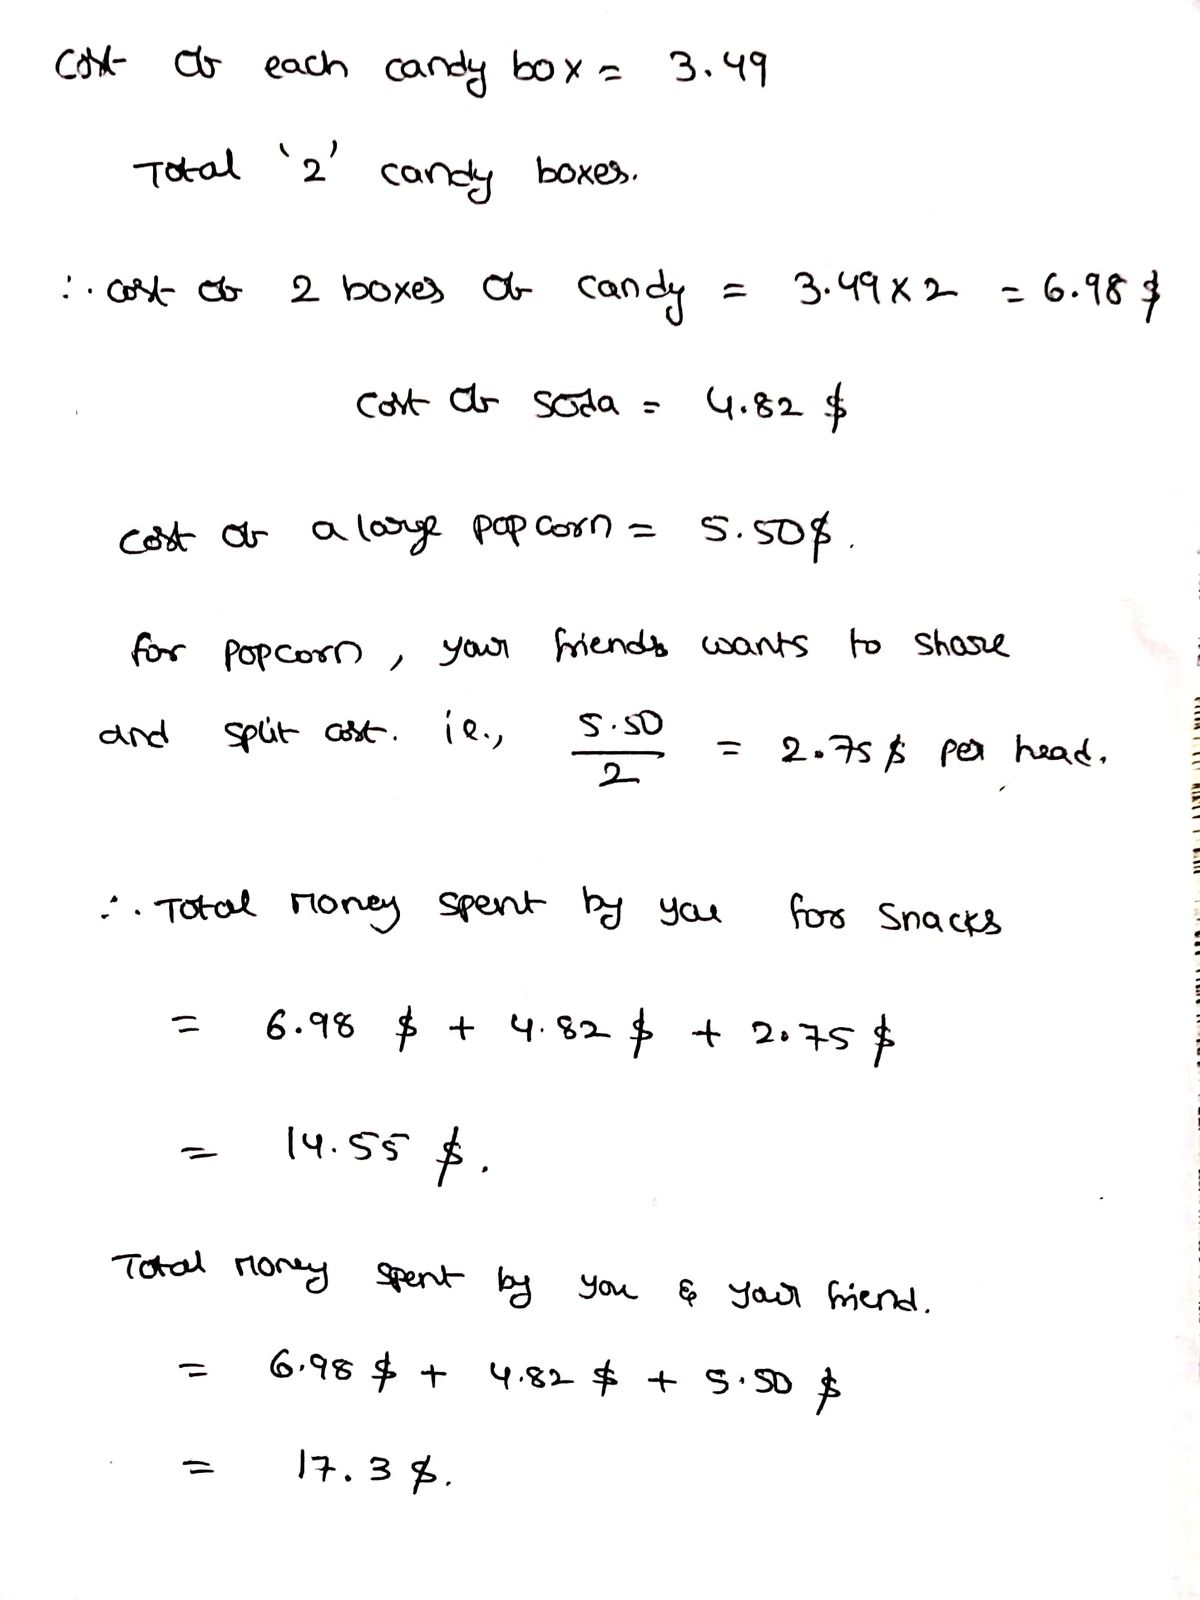 Cost of each candy box = 3.49
Total '2' candy boxes.
∴ cost of 2 boxes of candy = 3.49 x 2 = 6.98 $
Cost of soda = 4.82 $
cost of a large popcorn = 5.50$.
for popcorn, your friends wants to share
and split cost. ie., 5.50/2 = 2.75 $ per head.
∴ Total Money spent by you for snacks
= 6.98 $ + 4.82 $ + 2.75 $
= 14.55 $.
Total Money spent by you & your friend.
= 6.98 $ + 4.82 $ + 5.50 $
= 17.3 $.